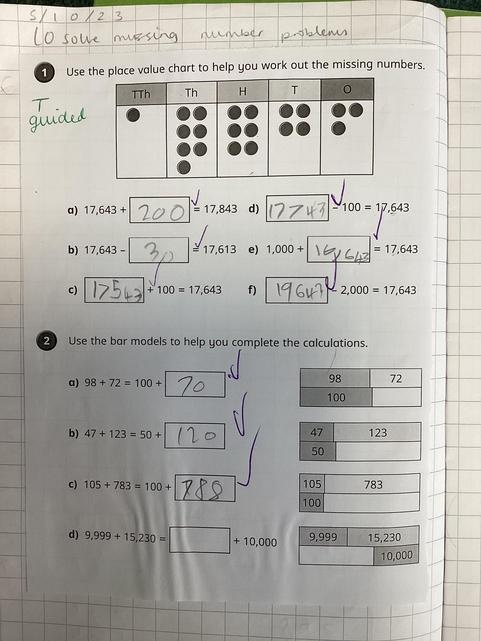 5/10/23
LO solve missing number problems
1 Use the place value chart to help you work out the missing numbers.
T guided
TTh Th H T O
a) 17,643 + 200 = 17,843 d) 17743 - 100 = 17,643
b) 17,643 – 30 = 17,613 e) 1,000 + 16,643 = 17,643
c) 17543 + 100 = 17,643 f) 19643 - 2,000 = 17,643
2 Use the bar models to help you complete the calculations.
a) 98 + 72 = 100 + 70
98 72
100
b) 47 + 123 = 50 + 120
47 123
50
c) 105 + 783 = 100 + 788
105 783
100
d) 9,999 + 15,230 = + 10,000
9,999 15,230
10,000